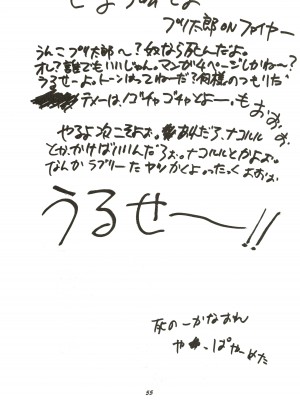 プリ太郎 ON ファイヤー
うんこプリ太郎〜?奴なら死んだよ。
オレ?誰でもいいじゃん。マンガ4ページしかねー?
うるせーよ。トーンはってねーだ?何様のつもりだ
テメーは、ゴチャゴチャとよー。もぉぉぉ
やるよ次こそよぉ。あれだろ、ナコルル
とか、かけばいいんだろぉ。ナコルルとかよぉ。
なんかラブリーたヤツかくよ。ったくよぉぉ
うるせ〜〜!!
灰の一かなおれ
や、ぱやーめた
55